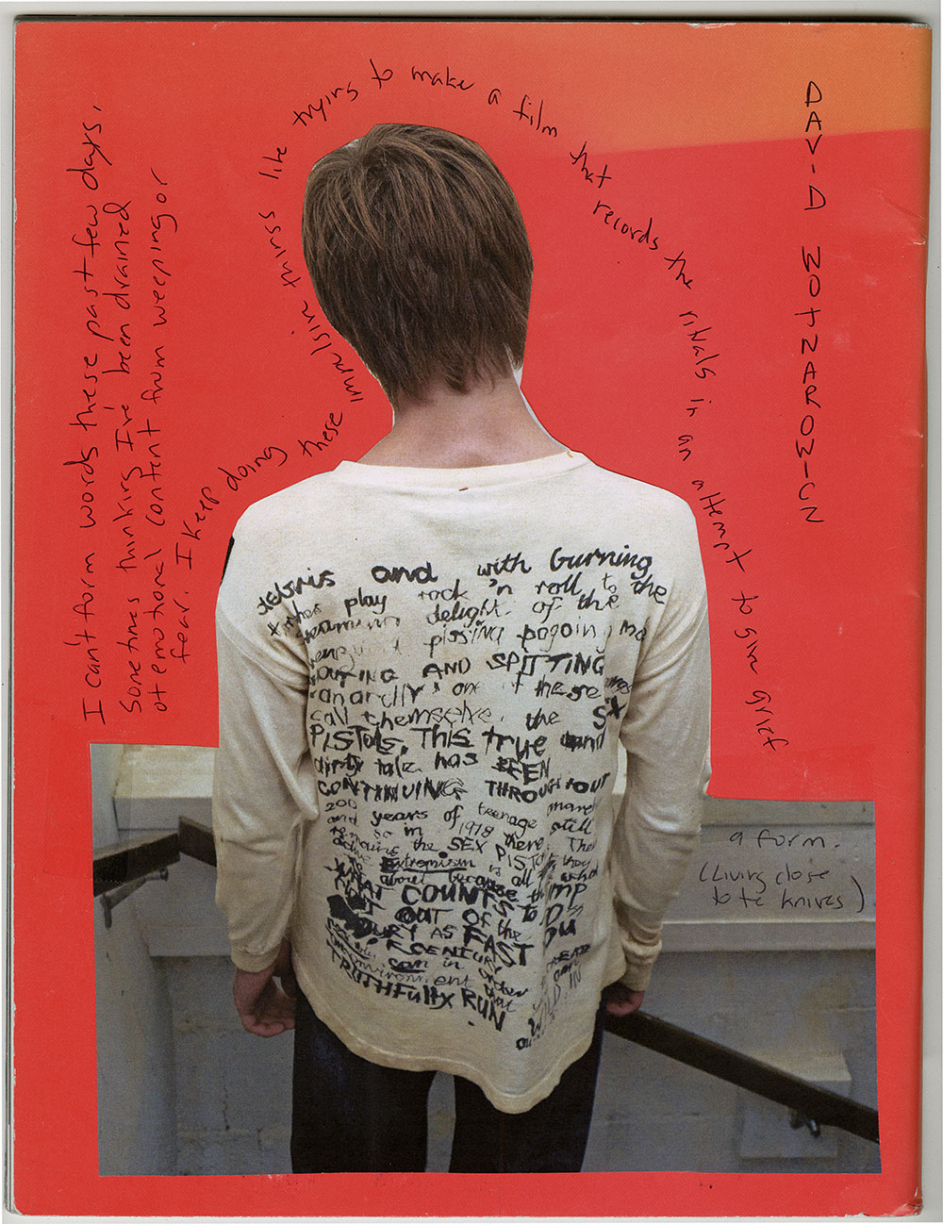 I can't form words these past few days,
Sometimes thinking I've been drained
of emotional content from weeping or
fear. I keep doing these impulsive things like trying to make a film that records the rituals in an attempt to give grief
a form.
(Living close
to te knives)
DAVID WOJNAROWICZ
debris and with burning
play rock 'n roll to the
delight of the
pissing pogoin
AND SPITTING
anarchy on these
call themselve the SEX
PISTOLS. THIS true and
dirty tale has BEEN
CONTINUING THROUGHOUT
200 years of teenage
and so in 1978 there still
the SEX PISTOLS
extremism is all they
about because
WHAT COUNTS to
OUT OF the DUMP
AS FAST
CAN in
environment that
TRUTHFULLY RUN
WILD IN